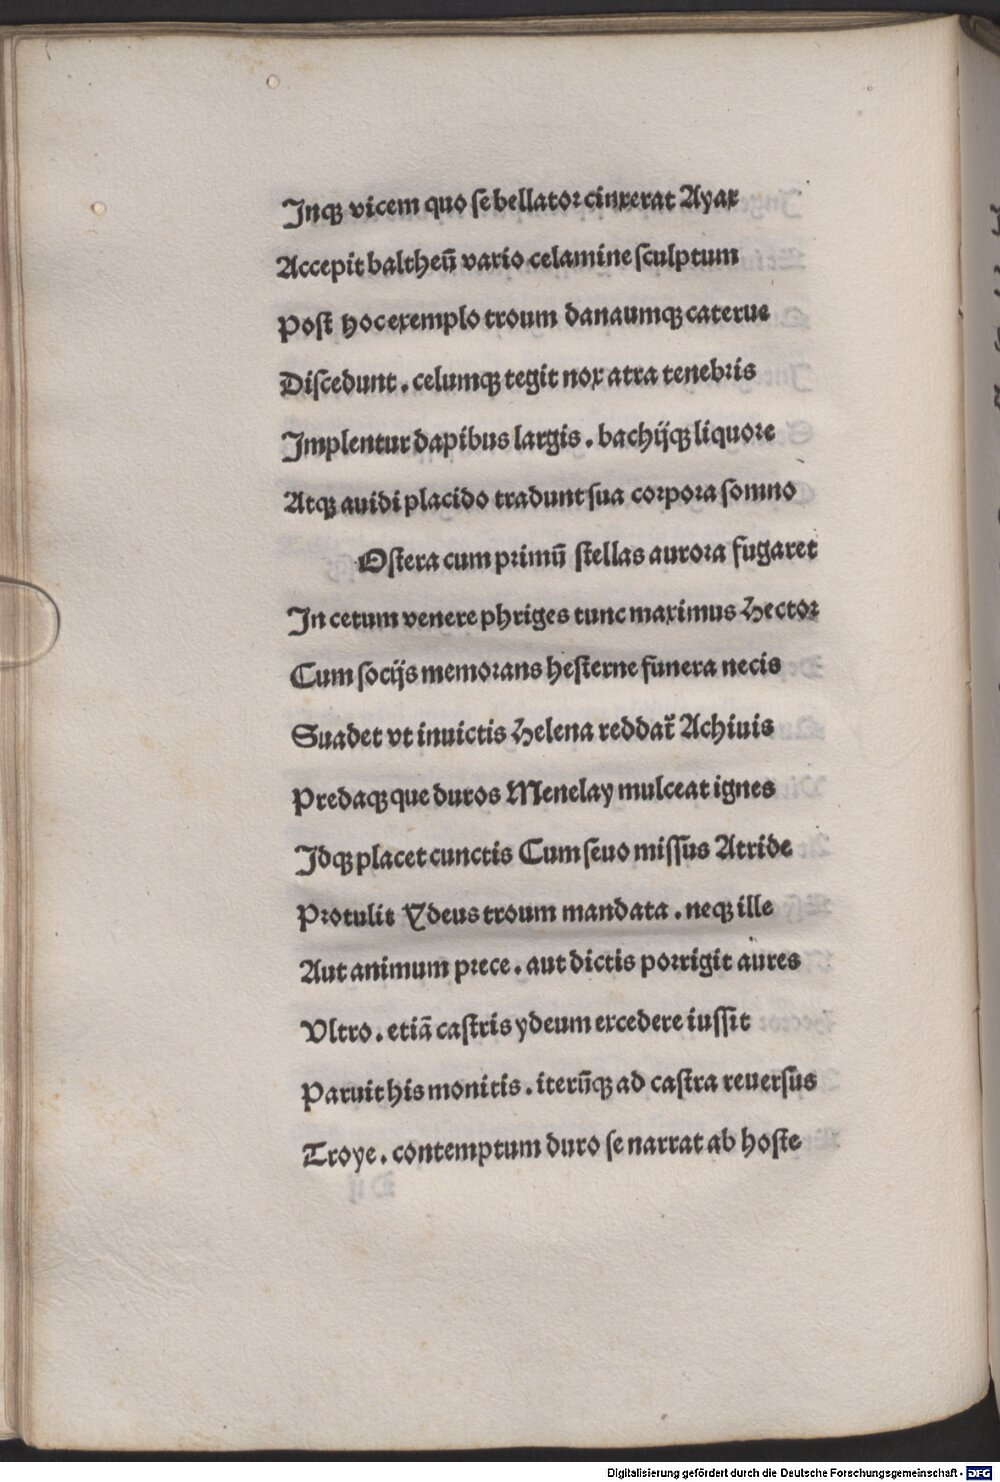 Inqꝫ vicem quo ſe bellatoꝛ cinxerat Ayax
Accepit baltheū vario celamine ſculptum
Poſt hoc exemplo troum danaumqꝫ caterue
Diſcedunt . celumqꝫ tegit nox atra tenebꝛis
Implentur dapibus largis . bachijqꝫ liquoꝛe
Atqꝫ auidi placido tradunt ſua coꝛpoꝛa ſomno
Oſtera cum pꝛimū ſtellas auroꝛa fugaret
In cetum venere phriges tunc maximus Hectoꝛ
Cum ſocijs memoꝛans heſterne funera necis
Suadet vt inuictis Helena reddat̄ Achiuis
Predaqꝫ que duros Menelay mulceat ignes
Idqꝫ placet cunctis Cum ſeuo miſſus Atride
Pꝛotulit Ydeus troum mandata . neqꝫ ille
Aut animum pꝛece . aut dictis poꝛrigit aures
Vltro . etiā caſtris ydeum excedere iuſſit
Paruit his monitis . iterūqꝫ ad caſtra reuerſus
Troye . contemptum duro ſe narrat ab hoſte
Digitalisierung gefördert durch die Deutsche Forschungsgemeinschaft - DFG